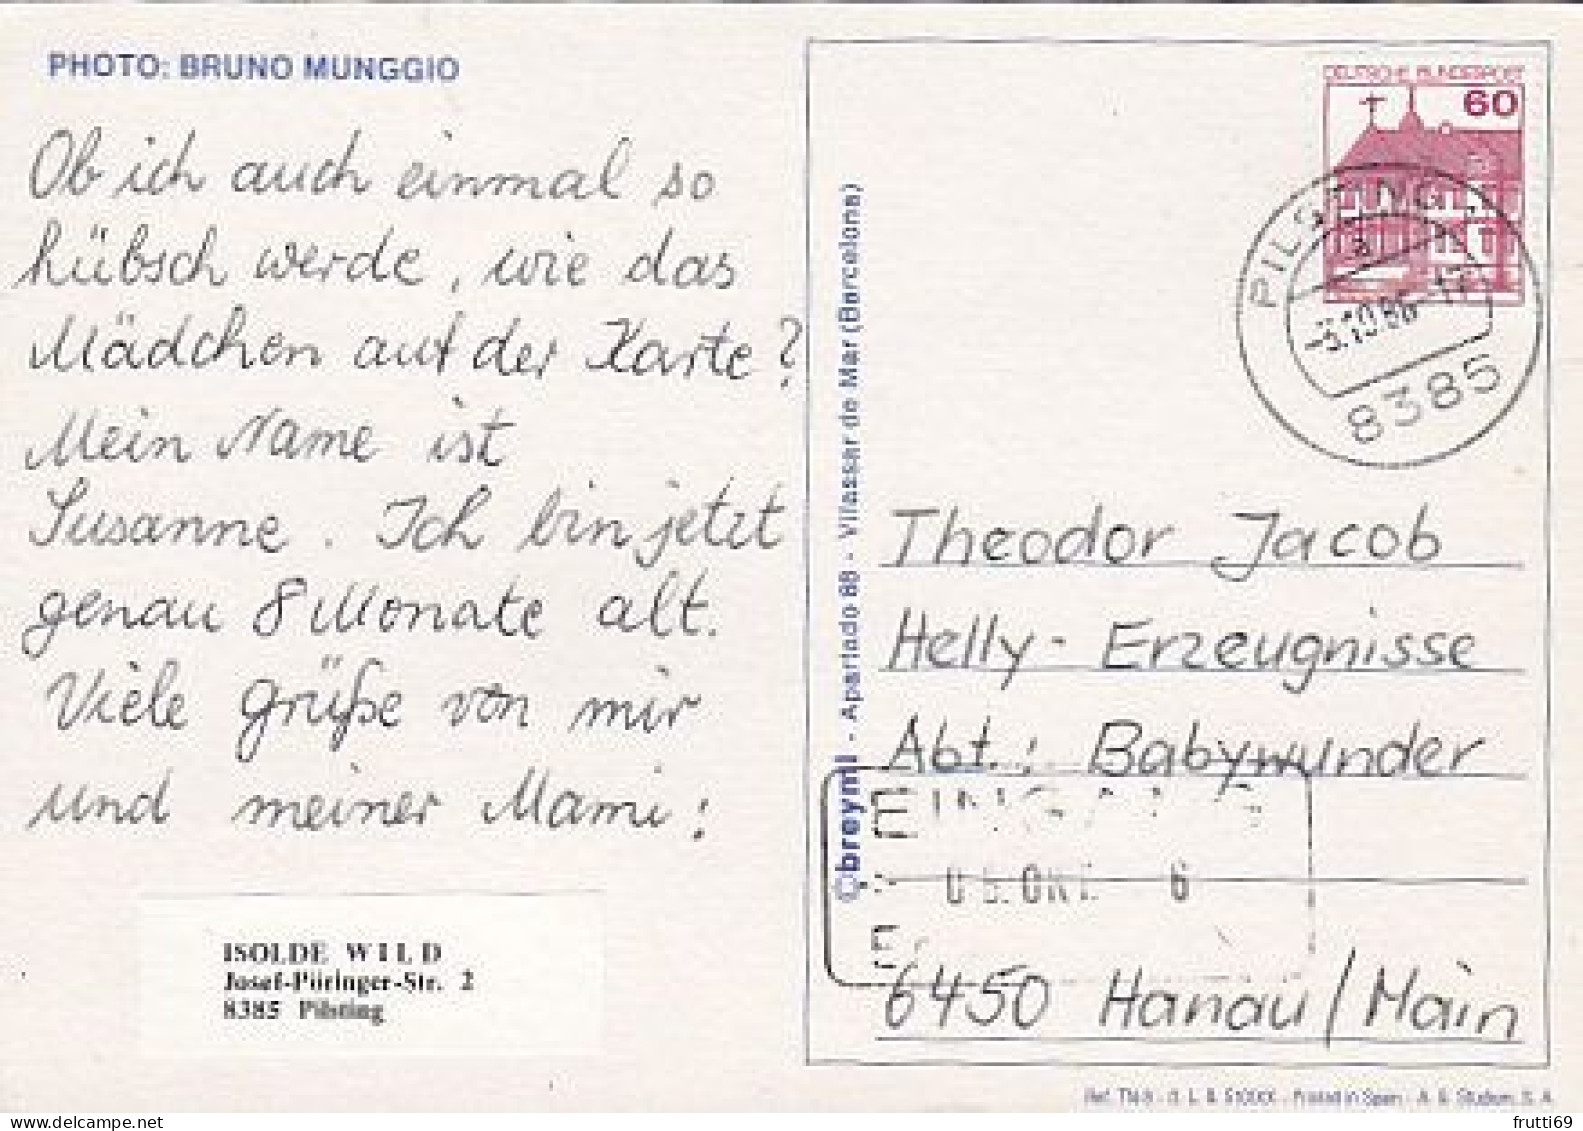 PHOTO: BRUNO MUNGGIO
Ob ich auch einmal so
hübsch werde, wie das
Mädchen auf der Karte?
Mein Name ist
Susanne. Ich bin jetzt
genau 8 Monate alt.
Viele Grüße von mir
und meiner Mami!
ISOLDE WILD
Josef-Püringer-Str. 2
8385 Pilsting
breyml - Apartado 88 - Vilassar de Mar (Barcelona)
DEUTSCHE BUNDESPOST
60
PILSTING
a
8385
Theodor Jacob
Helly-Erzeugnisse
Abt.: Babywunder
EINGANG
OKT. 6
6450 Hanau/Main
Printed in Spain
frutti69